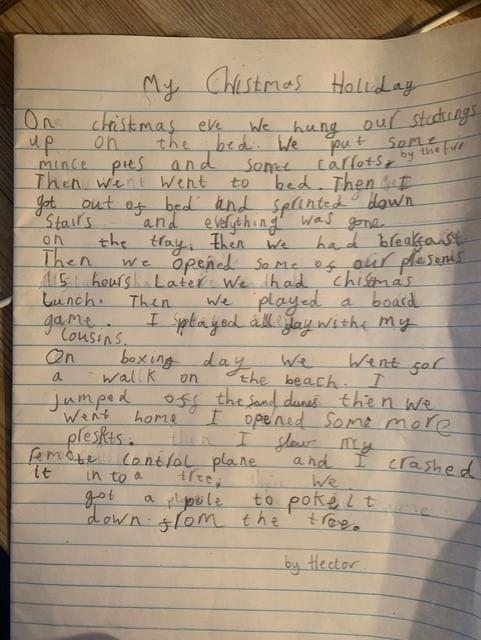 My Chistmas Holiday
One christmas eve we hung our stockings
up on the bed. We put some
mince pies and some carrots, by the fire
Then went went to bed. Then I
got out of bed and sprinted down
Stairs and everything was gone.
on the tray. Then we had breakfast
Then we opened some of our presents
15 hours Later we had chistmas
Lunch. Then we played a board
game. I played all day withe my
Cousins.
On boxing day we went for
a walk on the beach. I
jumped off the sand dunes then we
went home I opened some more
then I flew my
remote control plane and I crashed
it in to a tree, we
got a pole to poke it
down from the tree.
by Hector